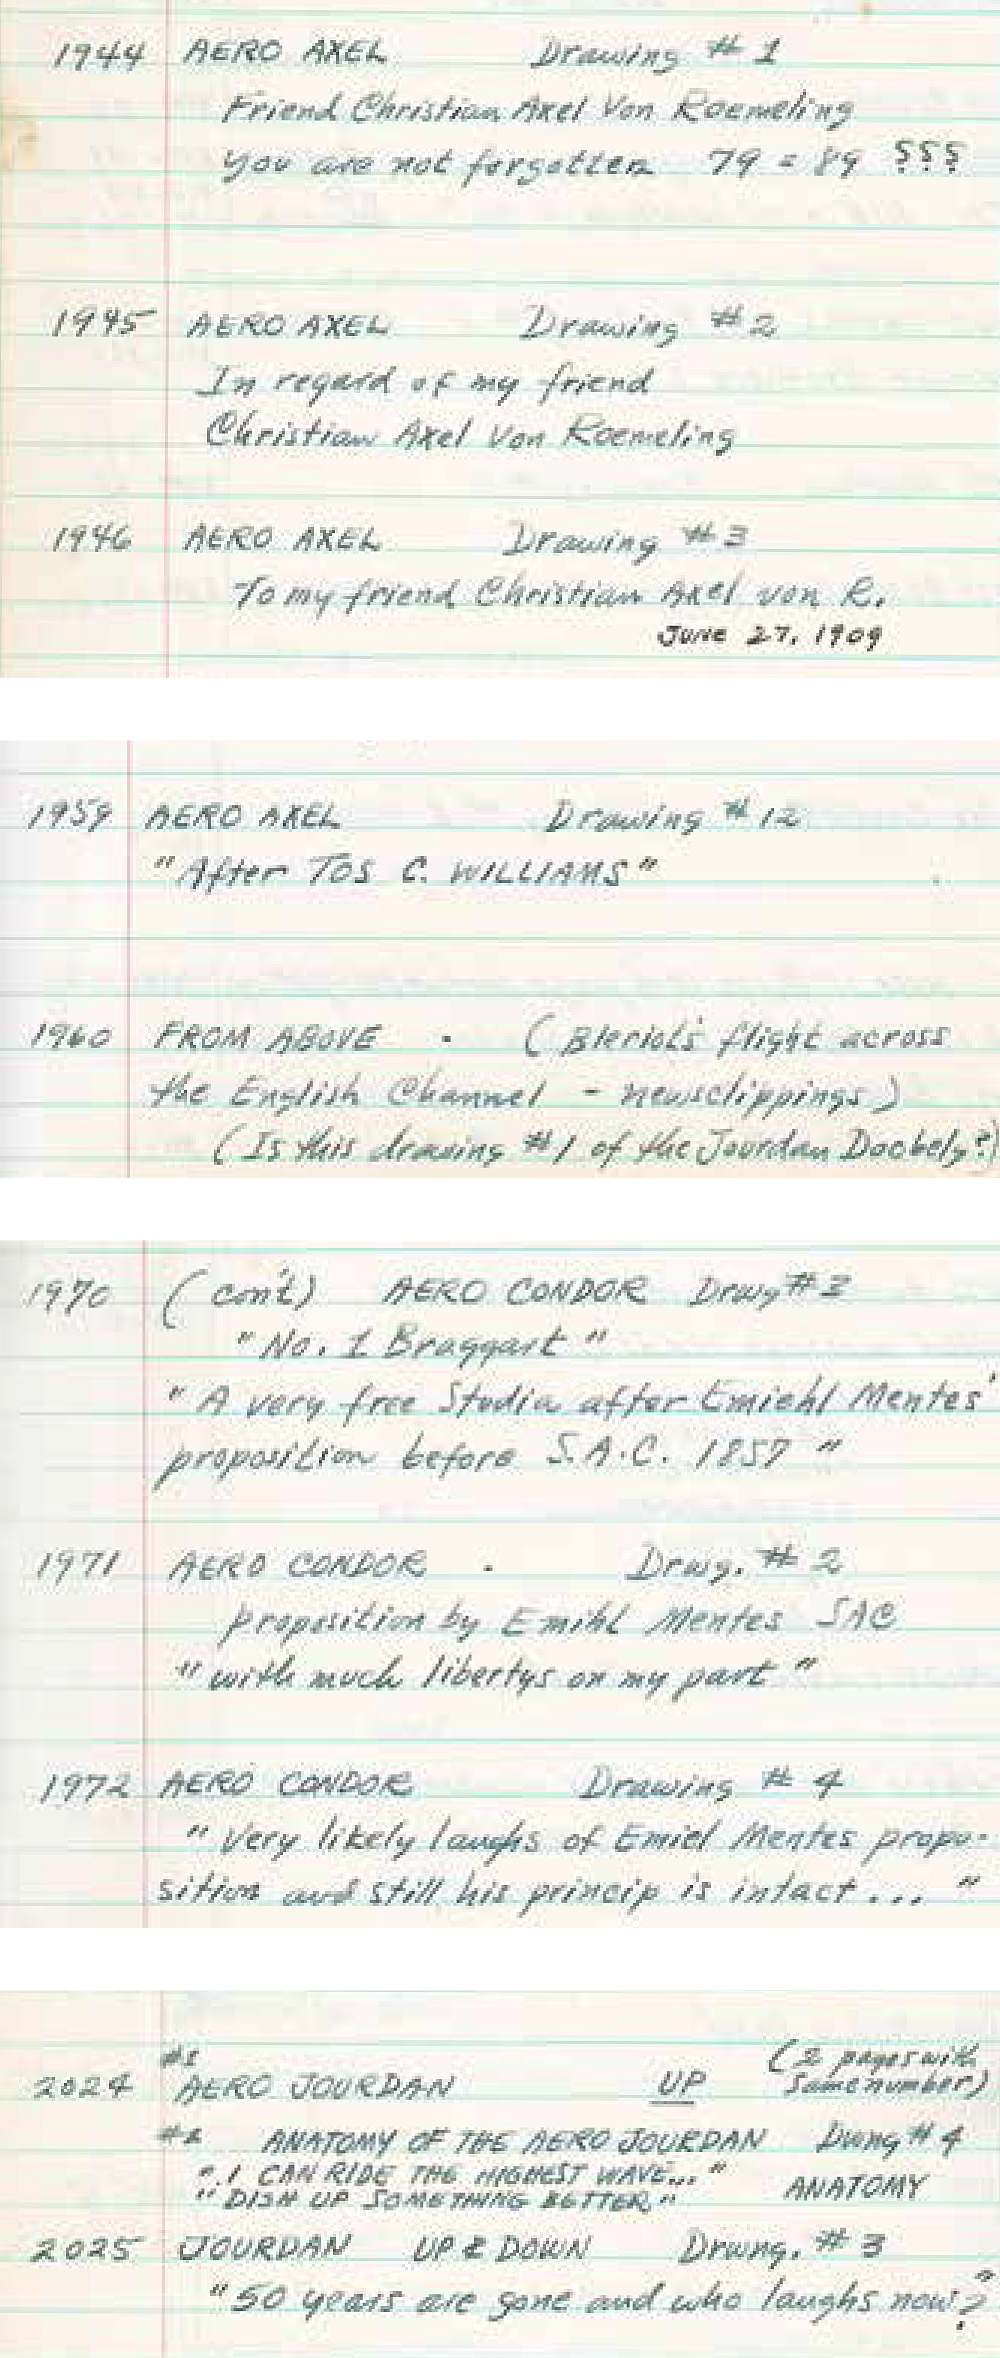 1944 AERO AXEL Drawing # 1
Friend Christian Axel Von Roemeling
you are not forgotten 79 = 89 §§§
1945 AERO AXEL Drawing #2
In regard of my friend
Christian Axel Von Roemeling
1946 AERO AXEL Drawing #3
To my friend Christian Axel von R.
June 27, 1909
1959 AERO AXEL Drawing #12
"After TOS C. WILLIAMS"
1960 FROM ABOVE . (Bleriot's flight across
the English Channel - newsclippings)
(Is this drawing #1 of the Jourdan Doobely?)
1970 (con't) AERO CONDOR Drwg #3
"No. 1 Braggart"
"A very free Studia after Emiehl Mentes'
proposition before S.A.C. 1857"
1971 AERO CONDOR . Drwg. # 2
proposition by Emihl Mentes SAC
"with much libertys on my part"
1972 AERO CONDOR Drawing # 4
"Very likely laughs of Emiel Mentes propo-
sition and still his princip is intact ... "
#1 (2 pages with
2024 AERO JOURDAN UP same number)
#2 ANATOMY OF THE AERO JOURDAN Dwng # 4
"I CAN RIDE THE HIGHEST WAVE..." ANATOMY
"DISH UP SOMETHING BETTER"
2025 JOURDAN UP & DOWN Drwng. # 3
"50 years are gone and who laughs now?"